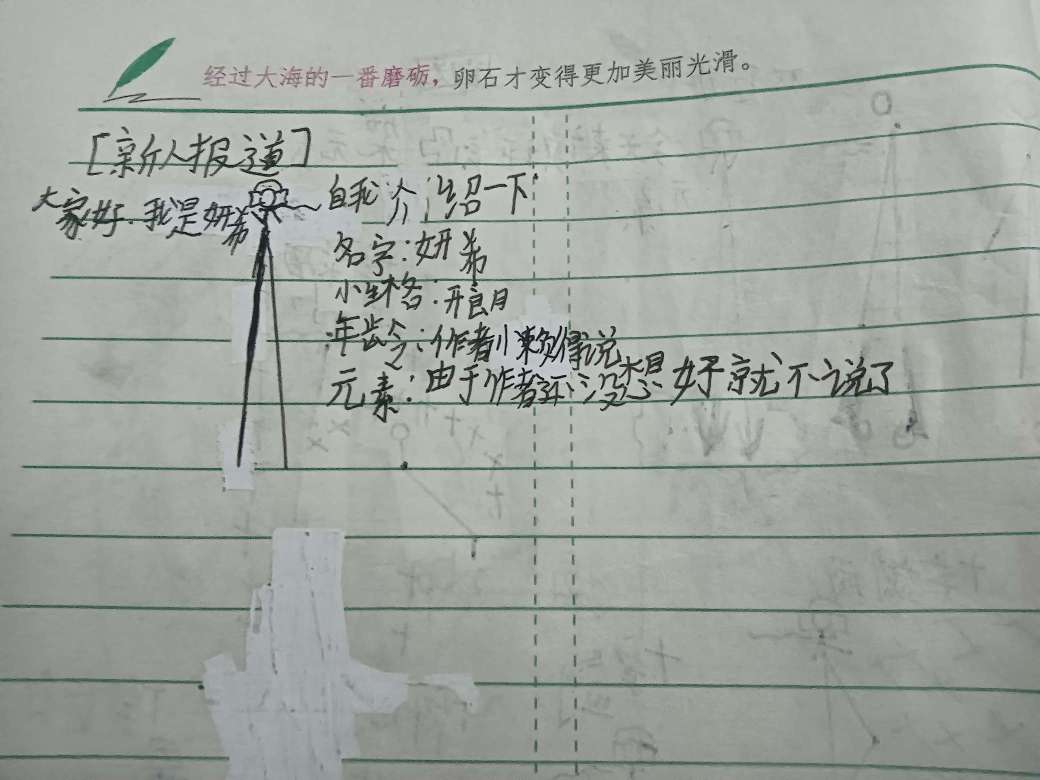 经过大海的一番磨砺，卵石才变得更加美丽光滑。
[新人报道]
大家好.我是妍希
自我介绍一下
名字:妍希
性格:开朗
年龄:作者懒得说
元素:由于作者还没想好就不说了